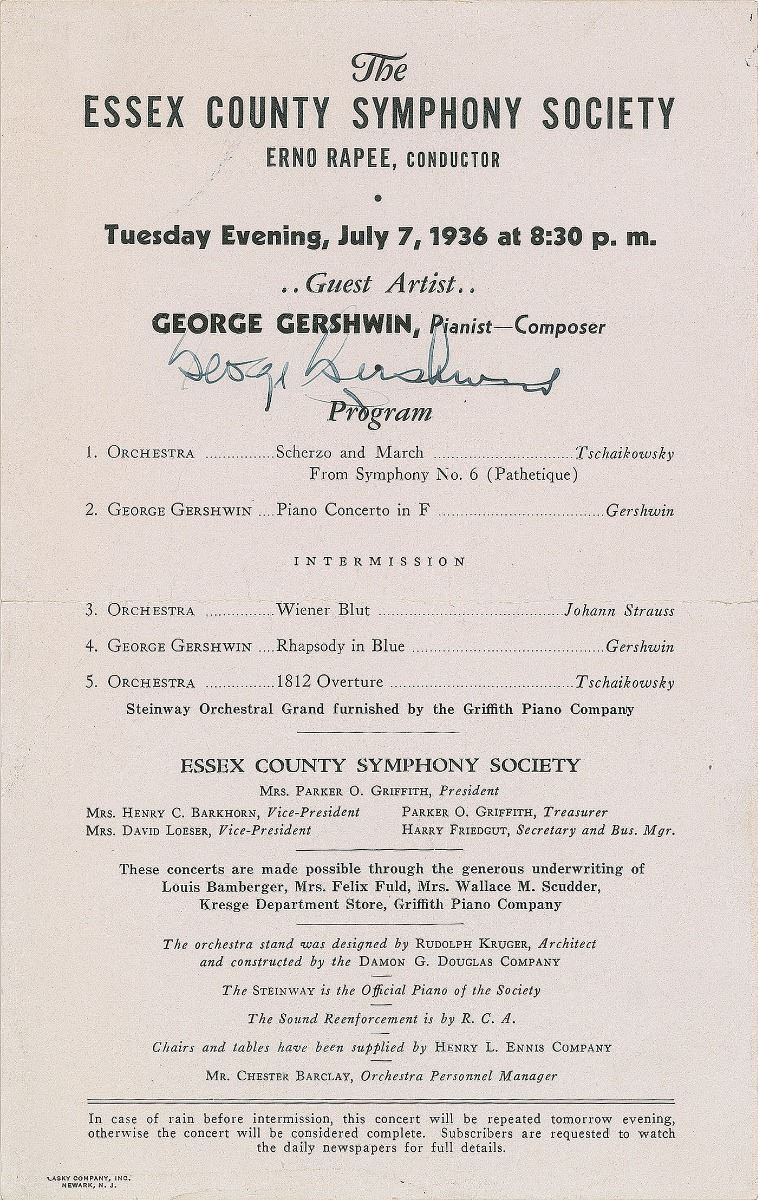 The
ESSEX COUNTY SYMPHONY SOCIETY
ERNO RAPEE, CONDUCTOR
•
Tuesday Evening, July 7, 1936 at 8:30 p. m.
..Guest Artist..
GEORGE GERSHWIN, Pianist—Composer
George Gershwin
Program
1. ORCHESTRA ...............Scherzo and March ...............................Tschaikowsky
From Symphony No. 6 (Pathetique)
2. GEORGE GERSHWIN ....Piano Concerto in F .....................................Gershwin
INTERMISSION
3. ORCHESTRA ...............Wiener Blut ........................................Johann Strauss
4. GEORGE GERSHWIN ....Rhapsody in Blue ..........................................Gershwin
5. ORCHESTRA ...............1812 Overture .........................................Tschaikowsky
Steinway Orchestral Grand furnished by the Griffith Piano Company
ESSEX COUNTY SYMPHONY SOCIETY
MRS. PARKER O. GRIFFITH, President
MRS. HENRY C. BARKHORN, Vice-President PARKER O. GRIFFITH, Treasurer
MRS. DAVID LOESER, Vice-President HARRY FRIEDGUT, Secretary and Bus. Mgr.
These concerts are made possible through the generous underwriting of
Louis Bamberger, Mrs. Felix Fuld, Mrs. Wallace M. Scudder,
Kresge Department Store, Griffith Piano Company
The orchestra stand was designed by RUDOLPH KRUGER, Architect
and constructed by the DAMON G. DOUGLAS COMPANY
The STEINWAY is the Official Piano of the Society
The Sound Reenforcement is by R. C. A.
Chairs and tables have been supplied by HENRY L. ENNIS COMPANY
MR. CHESTER BARCLAY, Orchestra Personnel Manager
In case of rain before intermission, this concert will be repeated tomorrow evening,
otherwise the concert will be considered complete. Subscribers are requested to watch
the daily newspapers for full details.
LASKY COMPANY, INC.
NEWARK, N. J.